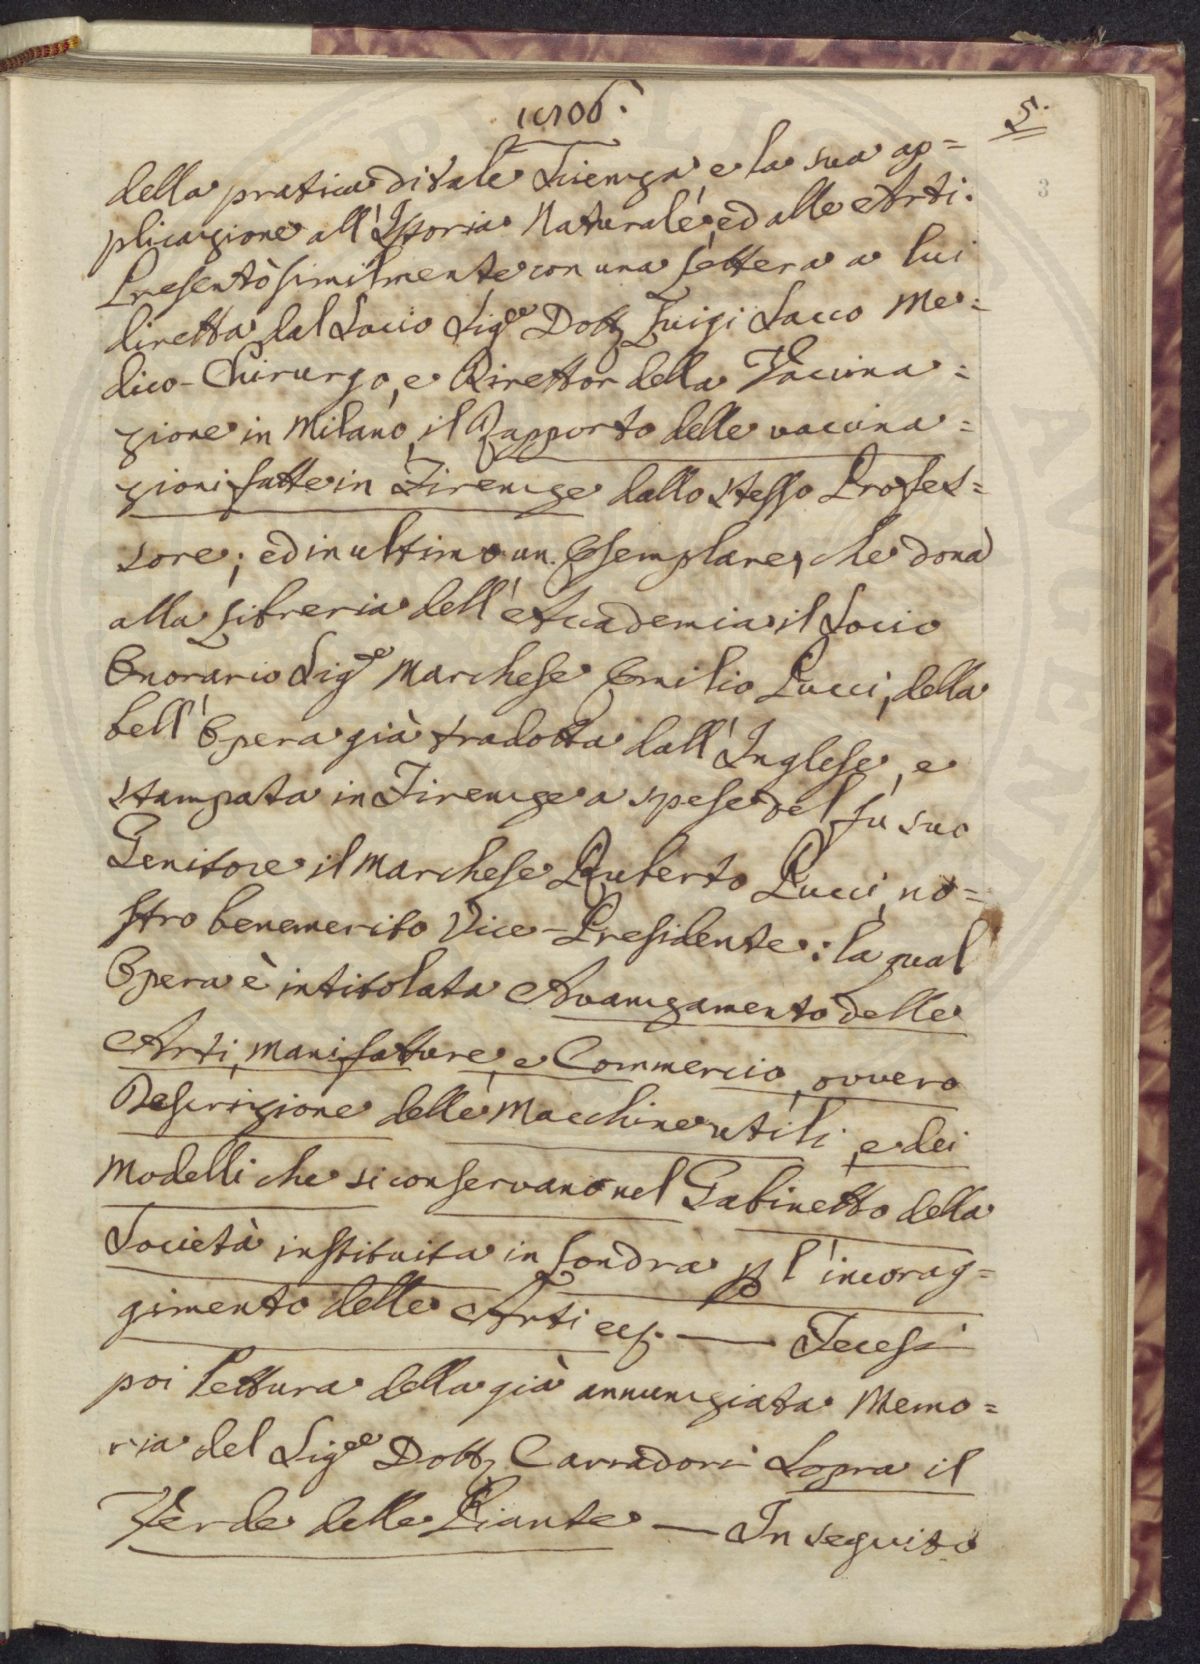 1806.
5.
3
della pratica di tale Scienza e la sua ap=
plicazione all'Istoria Naturale, ed alle Arti.
Presentò similmente con una Lettera a lui
diretta dal Socio Sig.re Dott. Luigi Sacco Me=
dico-Chirurgo, e Direttor della Vaccina=
zione in Milano, il Rapporto delle vaccina=
zioni fatte in Firenze dallo stesso Profes=
sore; ed in ultimo un Esemplare, che dona
alla Libreria dell'Accademia il Socio
Onorario Sig.re Marchese Emilio Pucci, della
bell'Opera già tradotta dall'Inglese, e
stampata in Firenze a spese del fù suo
Genitore il Marchese Ruberto Pucci, no=
stro benemerito Vice-Presidente: la qual
Opera è intitolata Avanzamento delle
Arti, Manifatture, e Commercio, ovvero
Descrizione delle Macchine utili, e dei
Modelli che si conservano nel Gabinetto della
Società instituita in Londra p l'incorag=
gimento delle Arti ec. — Fecesi
poi lettura della già annunziata Memo=
ria del Sig.re Dott. Carradori Sopra il
Verde delle Piante — In seguito